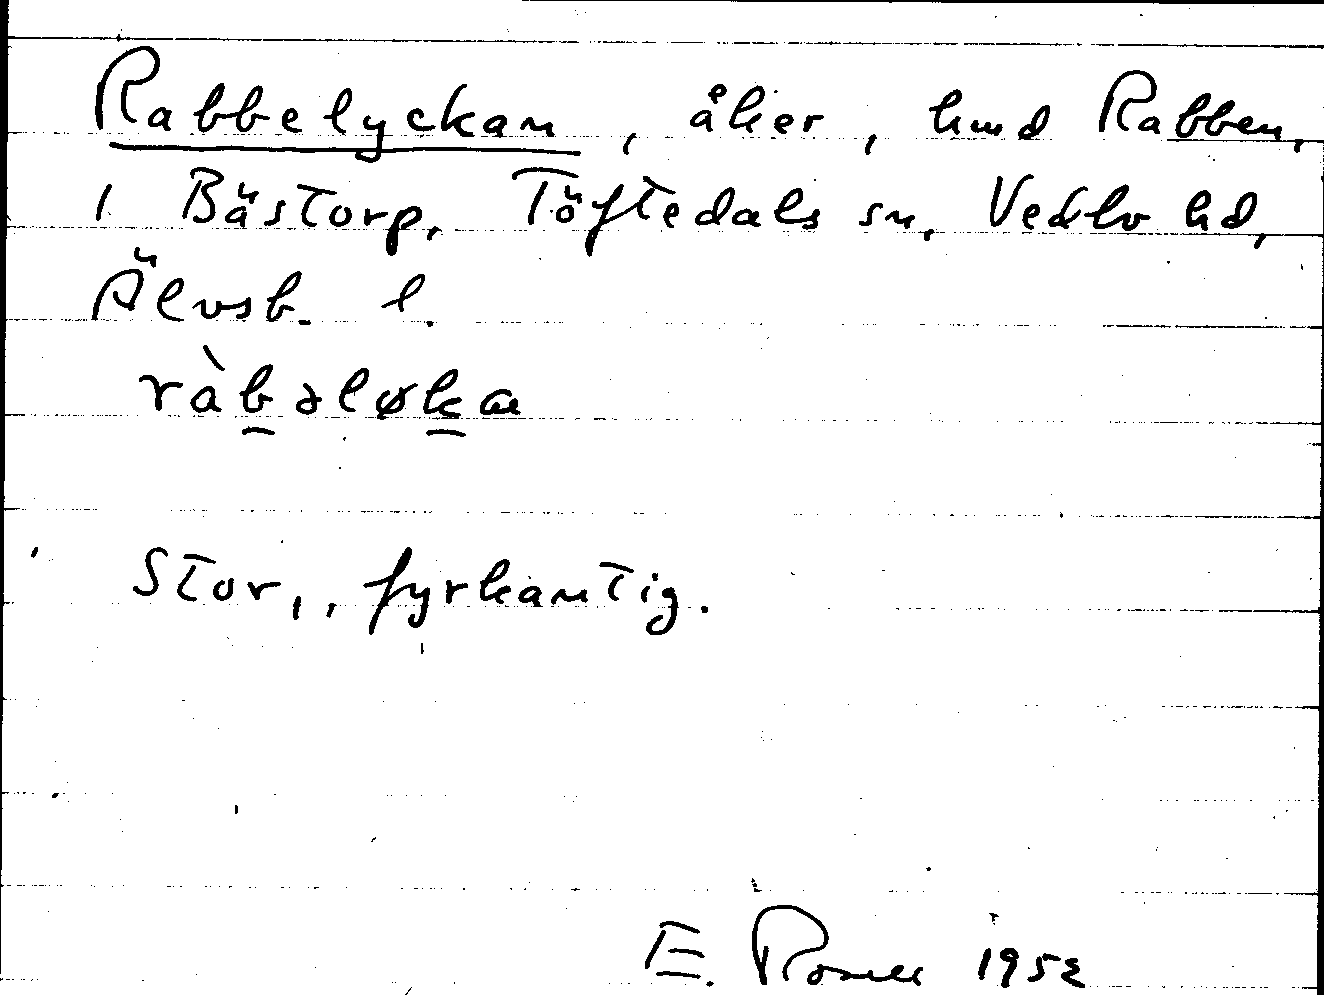 Rabbelyckan, åker, hmd Rabben,
i Bästorp, Töftedals sn, Vedbo hd,
Älvsb. l.
ràbəløka
Stor, fyrkantig.
E. 1952